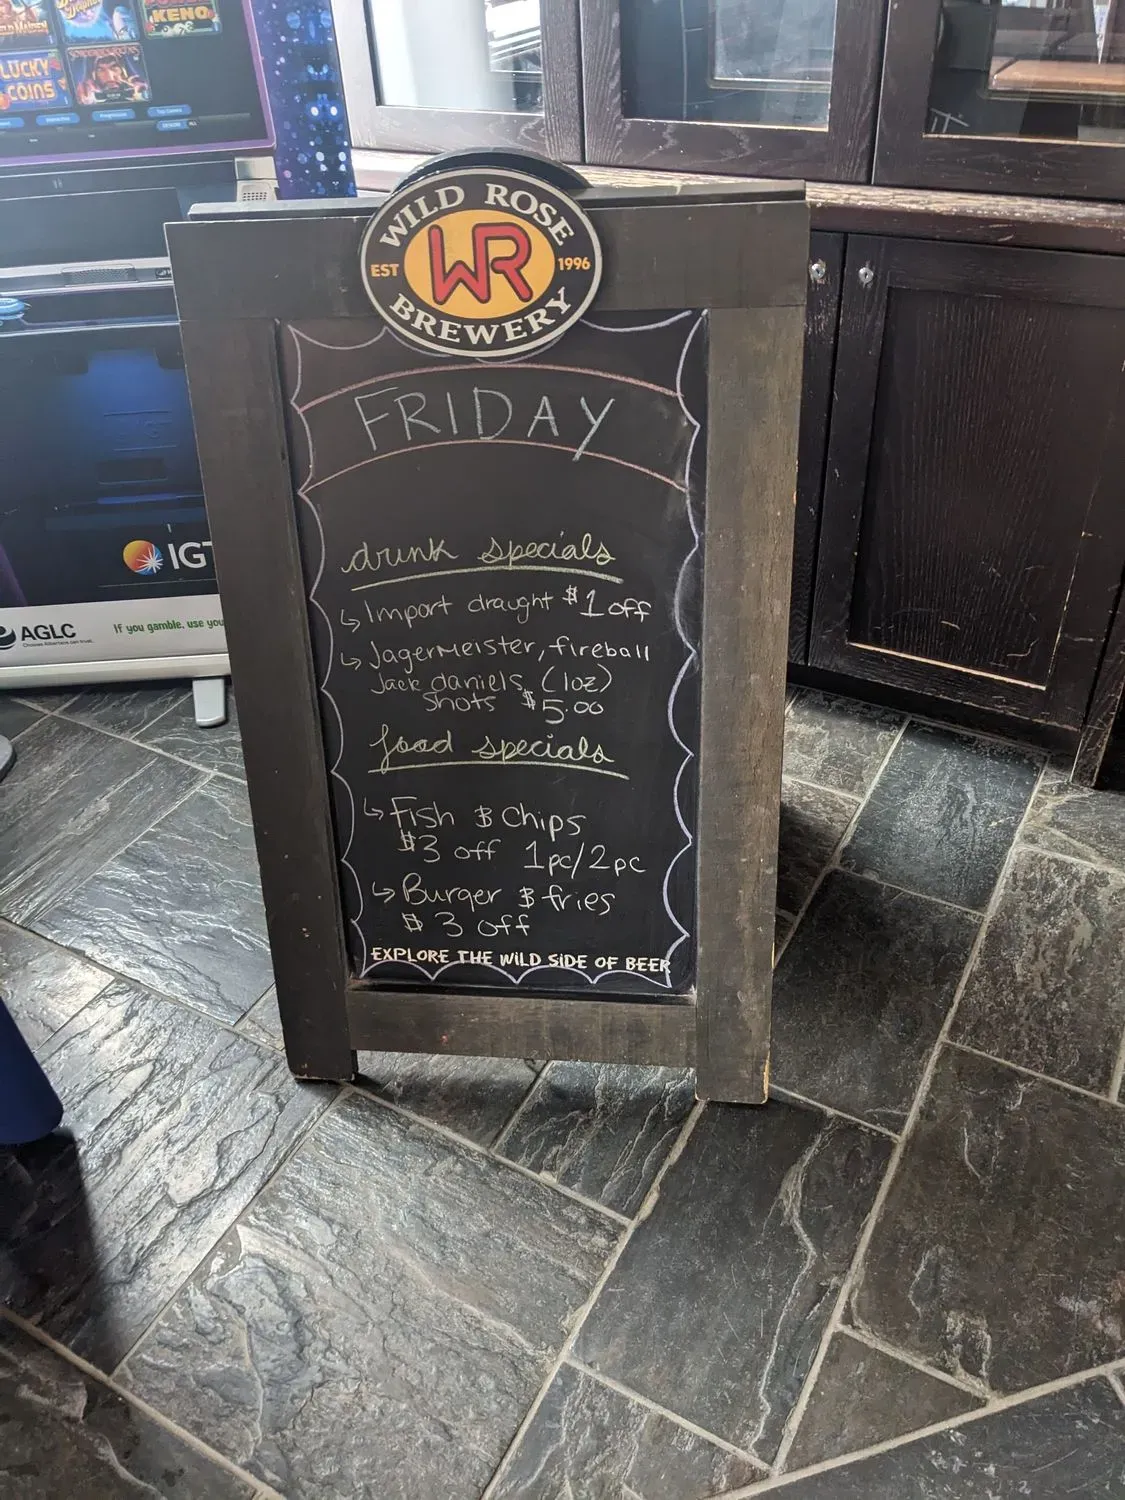 KENO
LUCKY
COINS
IGT
AGLC
If you gamble, use you
WILD ROSE
EST WR 1996
BREWERY
FRIDAY
drink specials
↳ Import draught $1 off
↳ Jagermeister, fireball
Jack daniels (1oz)
shots $5.00
food specials
↳ Fish & Chips
$3 off 1pc/2pc
↳ Burger & fries
$3 off
EXPLORE THE WILD SIDE OF BEER